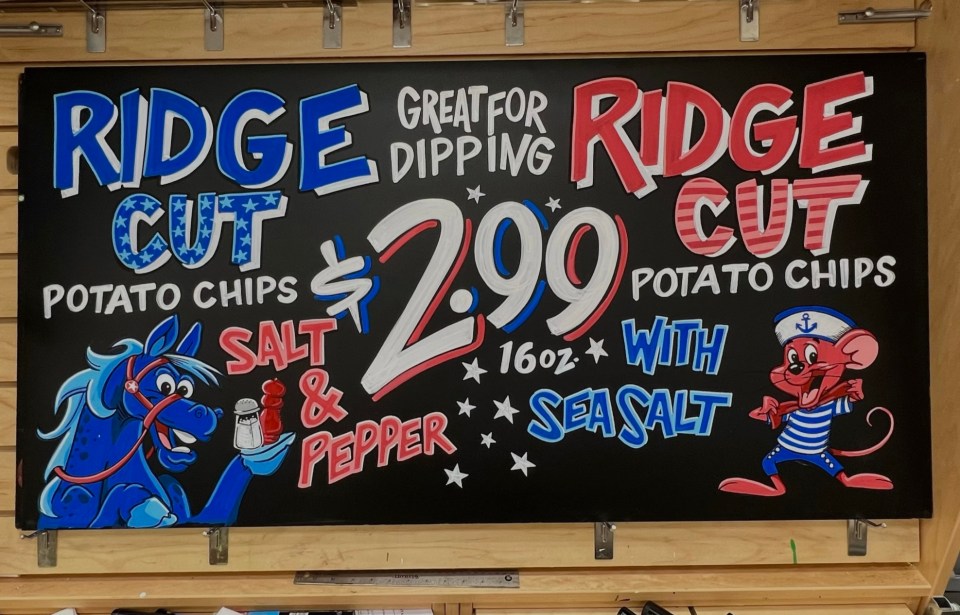 RIDGE
CUT
POTATO CHIPS
SALT
&
PEPPER
GREAT FOR
DIPPING
$2.99
16oz.
RIDGE
CUT
POTATO CHIPS
WITH
SEA SALT